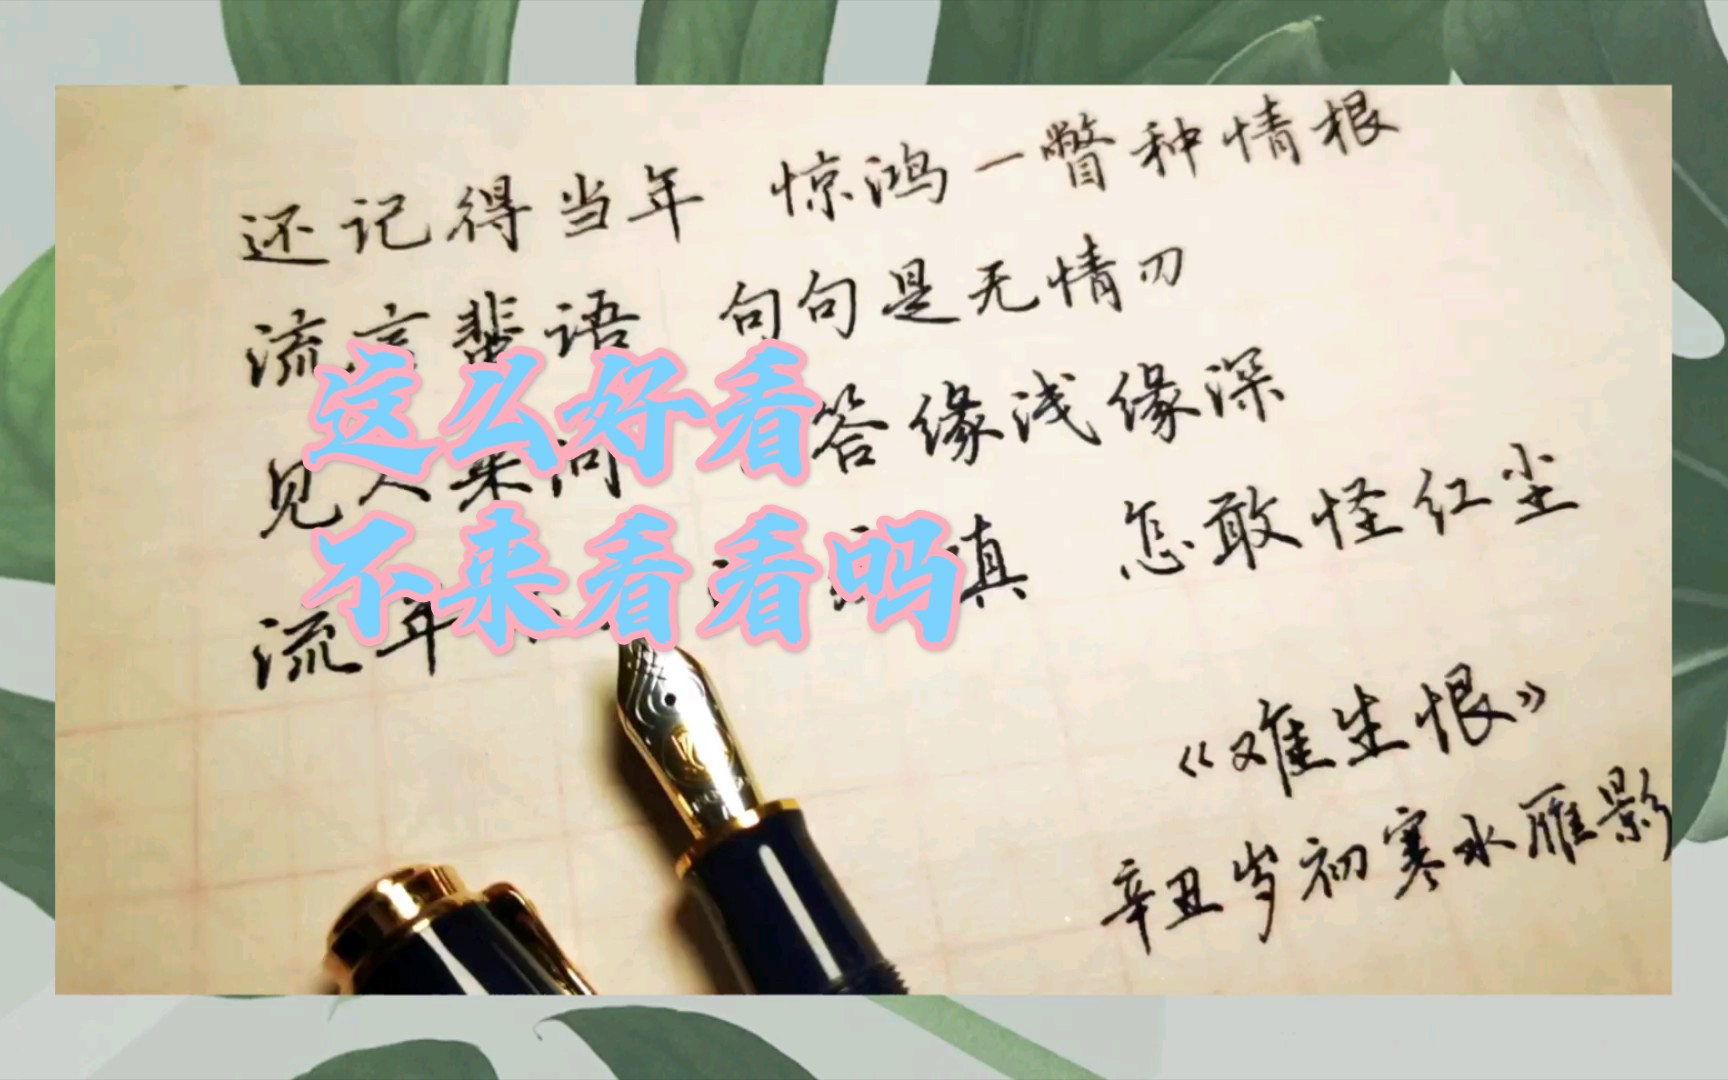 还记得当年 惊鸿一瞥种情根
流言蜚语 句句是无情刃
这么好看
见人来问 答缘浅缘深
不来看看吗
流年 真 怎敢怪红尘
《难生恨》
辛丑岁初寒水雁影